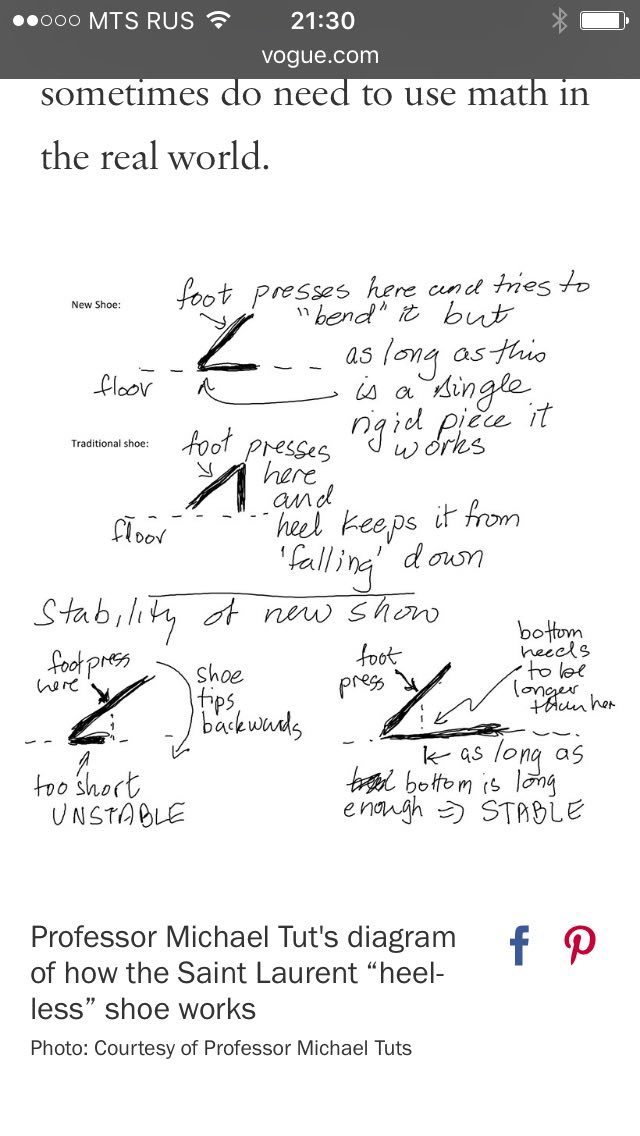 MTS RUS 21:30
vogue.com
sometimes do need to use math in
the real world.
New Shoe:
foot presses here and tries to
"bend" it but
as long as this
is a single
rigid piece it
works
floor
Traditional shoe:
foot presses
here
and
heel keeps it from
'falling' down
floor
Stability of new show
foot press
here
shoe
tips
backwards
too short
UNSTABLE
foot
press
bottom
needs
to be
longer
than her
as long as
bottom is long
enough => STABLE
Professor Michael Tut's diagram
of how the Saint Laurent “heel-
less” shoe works
Photo: Courtesy of Professor Michael Tuts